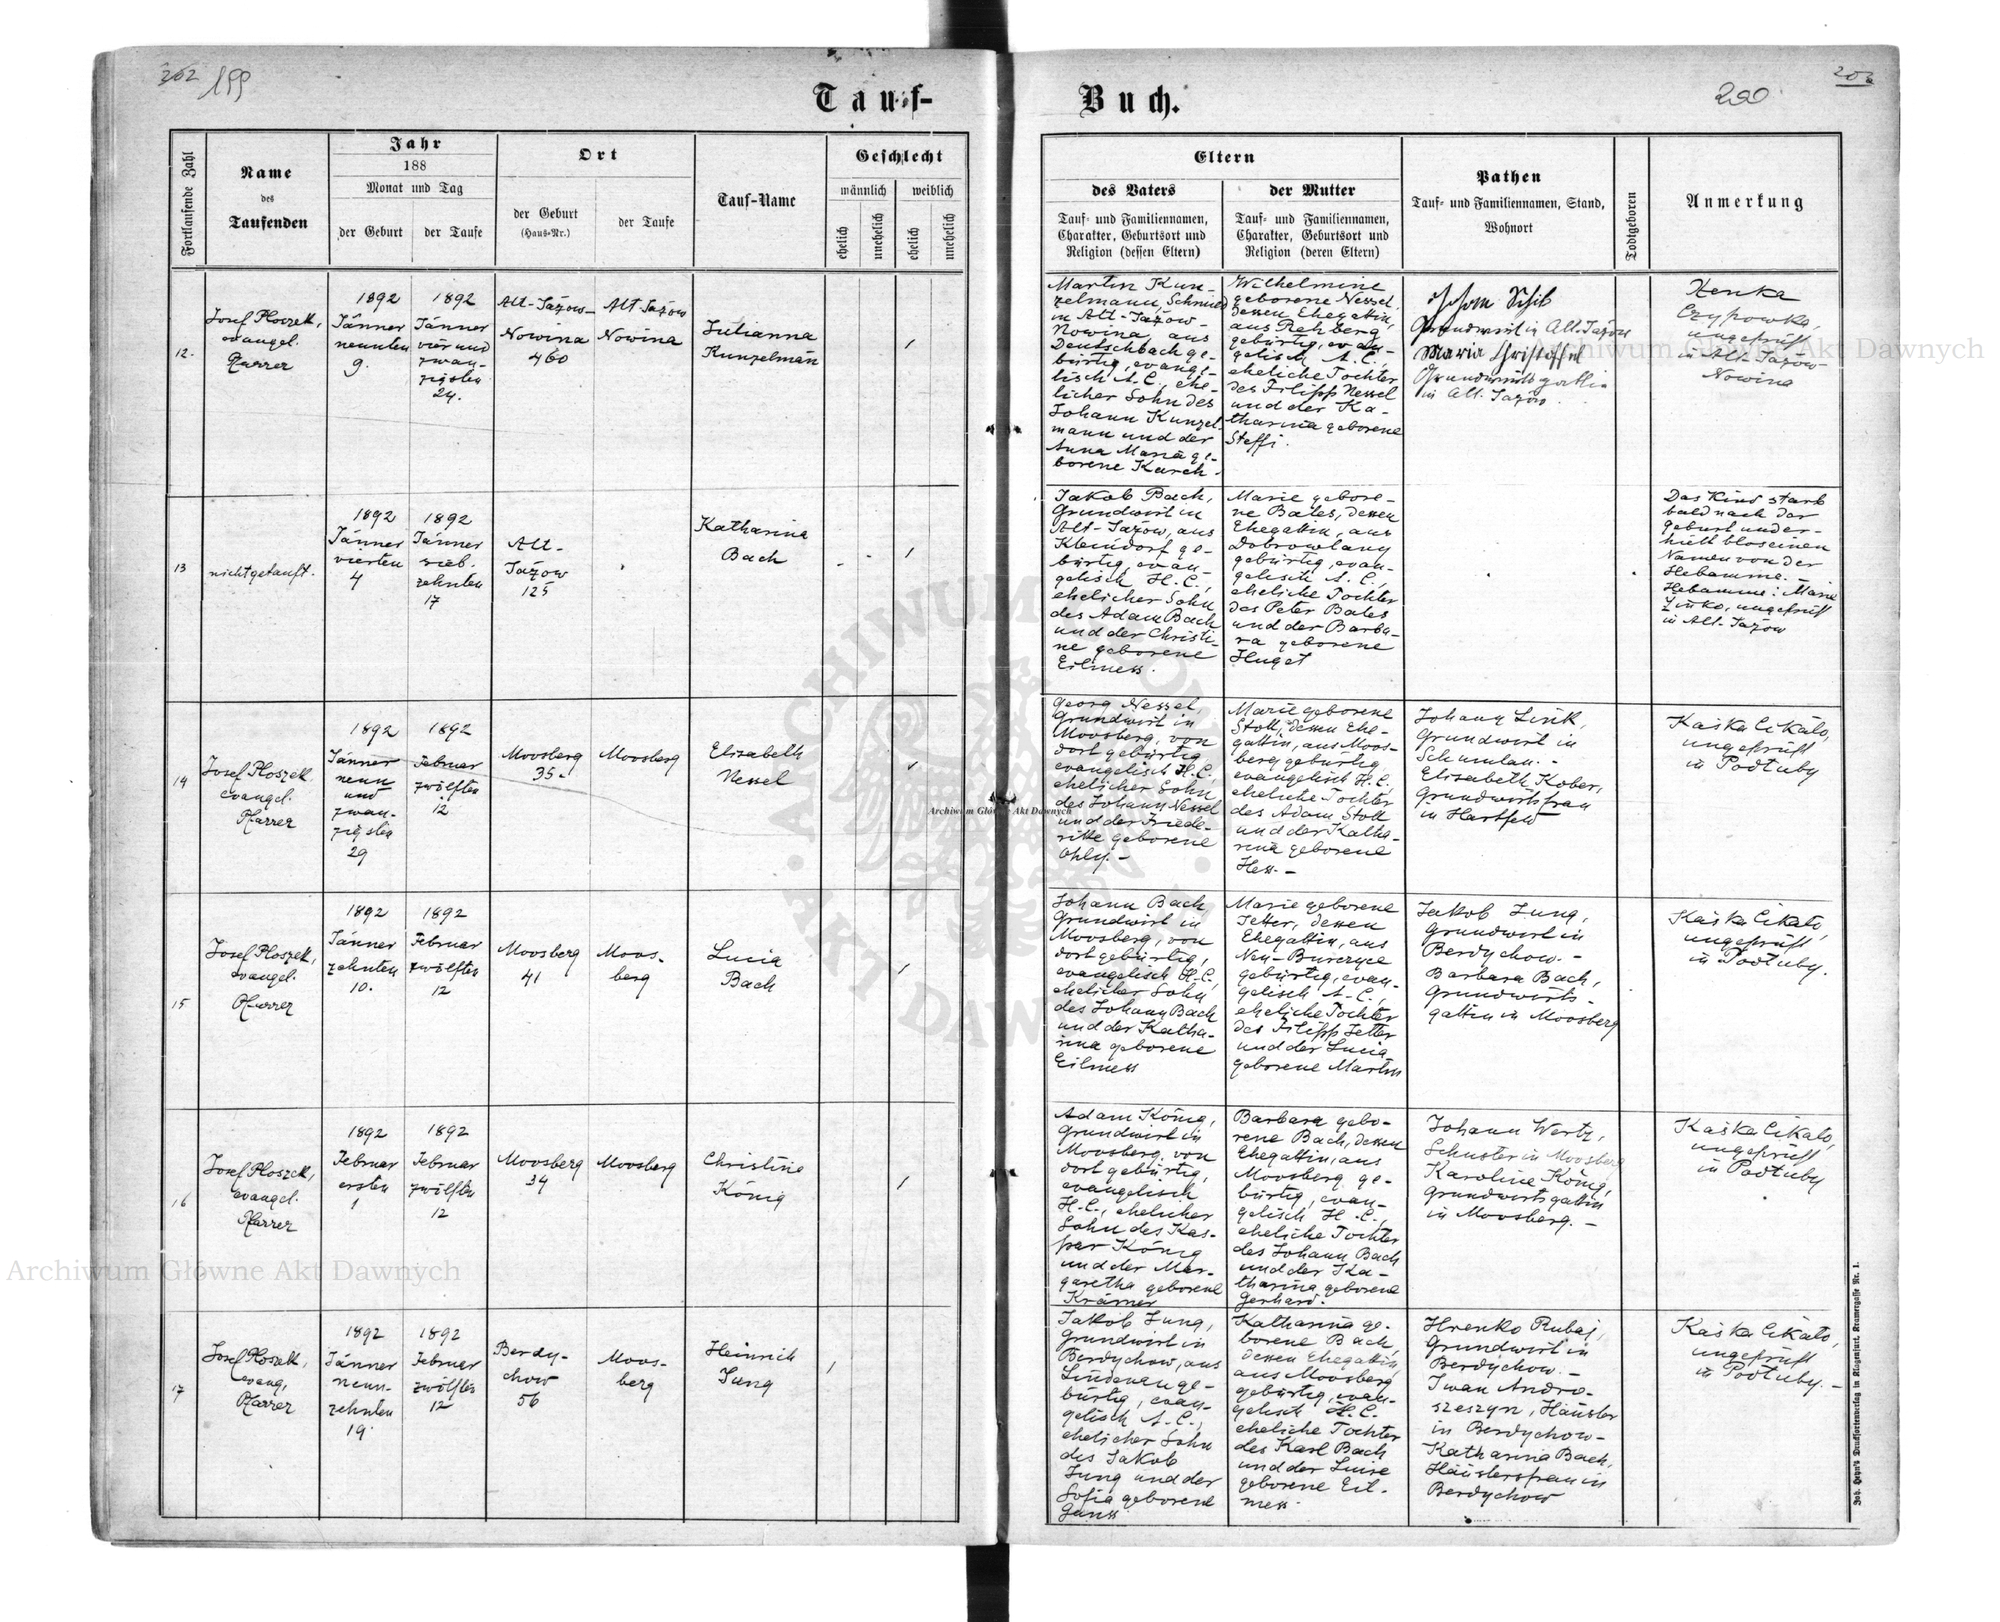 202 199
Tauf-
Buch.
200
202
Fortlaufende Zahl
Name
des
Taufenden
Jahr
188
Monat und Tag
der Geburt
der Taufe
Ort
der Geburt
(Haus-Nr.)
der Taufe
Tauf-Name
Geschlecht
männlich
weiblich
ehelich
unehelich
ehelich
unehelich
Eltern
des Vaters
Tauf- und Familiennamen,
Charakter, Geburtsort und
Religion (dessen Eltern)
der Mutter
Tauf- und Familiennamen,
Charakter, Geburtsort und
Religion (deren Eltern)
Pathen
Tauf- und Familiennamen, Stand,
Wohnort
Todtgeboren
Anmerkung
12.
Josef Ploszek,
evangel.
Pfarrer
1892
Jänner
neunten
9.
1892
Jänner
vier und
zwan-
zigsten
24.
Alt-Jażow-
Nowina
460
Alt Jażow
Nowina
Julianna
Kunzelman
Martin Kun-
zelmann, Schmied
in Alt-Jażow-
Nowina aus
Deutschbach ge-
bürtig, evange-
lisch A. C., ehe-
licher Sohn des
Johann Kunzel-
mann und der
Anna Maria ge-
borene Karch.
Wilhelmine
geborene Nessel
dessen Ehegattin,
aus Rehberg
gebürtig, evan-
gelisch A. C.,
eheliche Tochter
des Filipp Nessel
und der Ka-
tharina geborene
Steffi.
Johann Schib
Grundwirt in Alt-Jażow
Maria Christoffel
Grundwirtsgattin
in Alt. Jażow.
Xenka
Czypowka,
ungeprüft
in Alt-Jażow-
Nowina
13
nicht getauft.
1892
Jänner
vierten
4
1892
Jänner
sieb.
zehnten
17
Alt-
Jażow
125
Katharina
Bach
Jakob Bach,
Grundwirt in
Alt-Jażow, aus
Kleindorf ge-
bürtig, evan-
gelisch H. C.,
ehelicher Sohn
des Adam Bach
und der Christi-
ne geborene
Eilmess.
Marie gebore-
ne Bales, dessen
Ehegattin, aus
Dobrowlany
gebürtig, evan-
gelisch A. C.,
eheliche Tochter
des Peter Bales
und der Barba-
ra geborene
Huget
Das Kind starb
bald nach der
Geburt und er-
hielt blos einen
Namen von der
Hebamme.-
Hebamme: Marie
Zinko, ungeprüft
in Alt-Jażow
14
Josef Ploszek,
evangel.
Pfarrer
1892
Jänner
neun
und
zwan-
zigsten
29
1892
Februar
zwölften
12
Moosberg
35.
Moosberg
Elisabeth
Nessel
Georg Nessel,
Grundwirt in
Moosberg, von
dort gebürtig,
evangelisch H. C.,
ehelicher Sohn
des Johann Nessel
und der Friede-
rike geborene
Ohly.-
Marie geborene
Stoll, dessen Ehe-
gattin, aus Moos-
berg gebürtig,
evangelisch H. C.,
eheliche Tochter
des Adam Stoll
und der Katha-
rina geborene
Hess.-
Johann Lisik,
Grundwirt in
Schumlau.-
Elisabeth Kober,
Grundwirtsfrau
in Hartfeld
Kaśka Cikało,
ungeprüft
in Podłuby
15
Josef Ploszek,
evangel.
Pfarrer
1892
Jänner
zehnten
10.
1892
Februar
zwölften
12
Moosberg
41
Moos-
berg
Lucia
Bach
Johann Bach
Grundwirt in
Moosberg, von
dort gebürtig,
evangelisch H. C.,
ehelicher Sohn
des Johann Bach
und der Katha-
rina geborene
Eilmess
Marie geborene
Jetter, dessen
Ehegattin, aus
Neu-Burczyce
gebürtig, evan-
gelisch A. C.,
eheliche Tochter
des Filipp Jetter
und der Lucia
geborene Martin
Jakob Jung,
Grundwirt in
Berdychow.-
Barbara Bach,
Grundwirts-
gattin in Moosberg
Kaśka Cikało,
ungeprüft
in Podłuby.
16
Josef Ploszek,
evangel.
Pfarrer
1892
Februar
ersten
1
1892
Februar
zwölften
12
Moosberg
34
Moosberg
Christine
König
Adam König,
Grundwirt in
Moosberg, von
dort gebürtig,
evangelisch
H. C., ehelicher
Sohn des Kas-
par König
und der Mar-
garetha geborene
Krämer
Barbara gebo-
rene Bach, dessen
Ehegattin, aus
Moosberg ge-
bürtig, evan-
gelisch H. C.,
eheliche Tochter
des Johann Bach
und der Ka-
tharina geborene
Gerhard.
Johann Wertz,
Schuster in Moosberg
Karoline König,
Grundwirtsgattin
in Moosberg.-
Kaśka Cikało,
ungeprüft
in Podłuby
17
Josef Ploszek,
evang,
Pfarrer
1892
Jänner
neun-
zehnten
19.
1892
Februar
zwölften
12
Berdy-
chow
56
Moos-
berg
Heinrich
Jung
Jakob Jung,
Grundwirt in
Berdychow, aus
Lindenau ge-
bürtig, evan-
gelisch A. C.,
ehelicher Sohn
des Jakob
Jung und der
Sofia geborene
Ganss
Katharina ge-
borene Bach,
dessen Ehegattin,
aus Moosberg
gebürtig, evan-
gelisch H. C.
eheliche Tochter
des Karl Bach
und der Luise
geborene Eil-
mess.
Hrenko Rubaj,
Grundwirt in
Berdychow.-
Iwan Andro-
szeszyn, Häusler
in Berdychow-
Katharina Bach,
Häuslersfrau in
Berdychow
Kaśka Cikało,
ungeprüft
in Podłuby.-
Joh. Heyn's Drucksortenverlag in Klagenfurt, Kramergasse Nr. 1.
Archiwum Główne Akt Dawnych
Archiwum Główne Akt Dawnych
Archiwum Główne Akt Dawnych